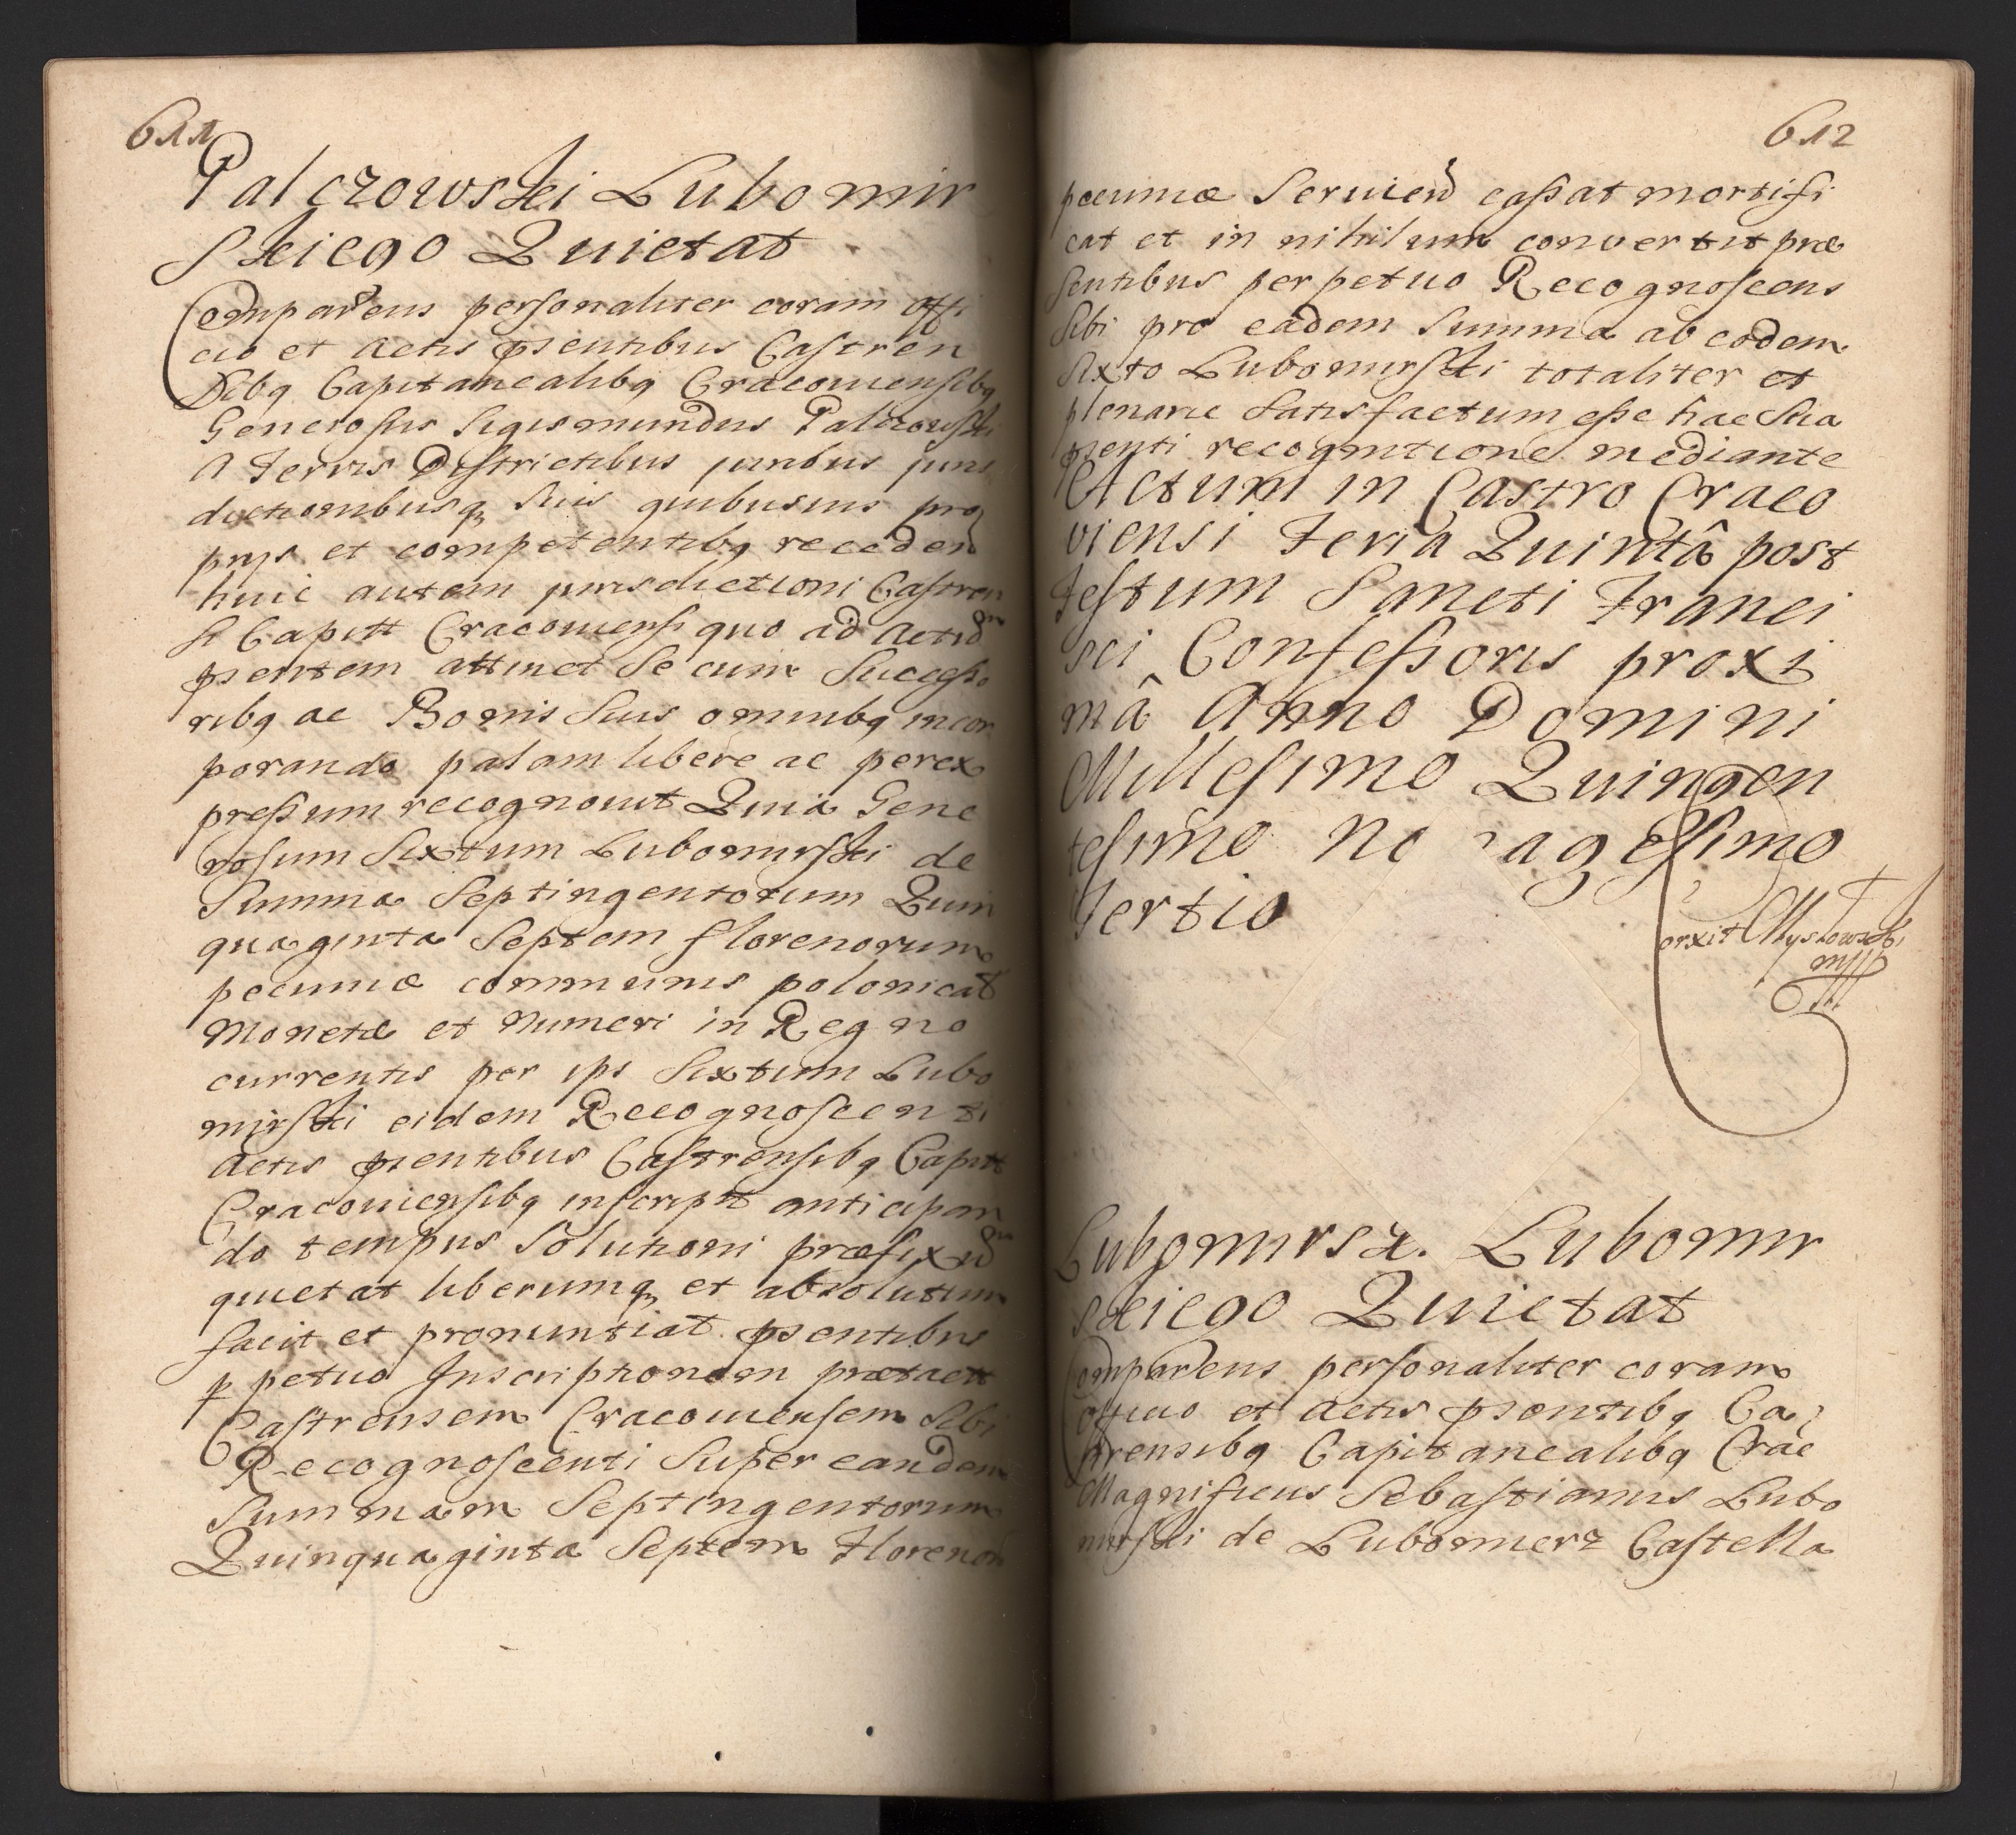 611
Palczowski Lubomir
skiego Quietat
Comparens personaliter coram offi
cio et Actis pñentibus Castren
Sibq Capitanealibq Cracouiensibq
Generosus Sigismundus Palczowski
A Terris Districtibus juribus juris
dictionibusq suis quibusuis pro
prys et competentibq receden
huic autem jurisdictioni Castren
si Capitt Cracouiensi quo ad Actũ
pñentem attinet Se cum Successo
ribq ac Bonis Suis omnibq incor
porando palam libere ac perex
pressum recognouit Quia Gene
rosum Sixtum Lubomirski de
Summa Septingentorum Quin
quaginta Septem florenorum
pecuniæ communis polonicat
Monetæ et Numeri in Regno
currentis per ips Sixtum Lubo
mirski eidem Recognoscenti
Actis pñentibus Castrensibq Capitt
Cracouiensibq inscript anticipan
do tempus Solutioni præfixũ
quietat liberumq et absolutum
facit et pronuntiat pñentibus
ppetuo Inscriptionem prætactt
Castrensem Cracouiensem Sibi
Recognoscenti Super eandem
Summam Septingentorum
Quinquaginta Septem Florenor
612
pecuniæ Seruien cassat mortifi
cat et in nihilum conuertit præ
sentibus perpetuo Recognoscens
Sibi pro eadem Summa ab eodem
Sixto Lubomirski totaliter et
plenarie Satisfactum esse hac Sua
pñenti recognitione mediante
Actum in Castro Craco
viensi Feria Quintâ post
Festum Sancti Franci
sci Confessoris proxi
mâ Anno Domini
Millesimo Quingen
tesimo No nagesimo
Tertio
orxit Myskowski
mp
Lubomirski Lubomir
skiego Quietat
Comparens personaliter coram
officio et Actis pñentibq Cas
trensibq Capitanealibq Crac
Magnificus Sebastianus Lubo
mirski de Lubomierz Castella